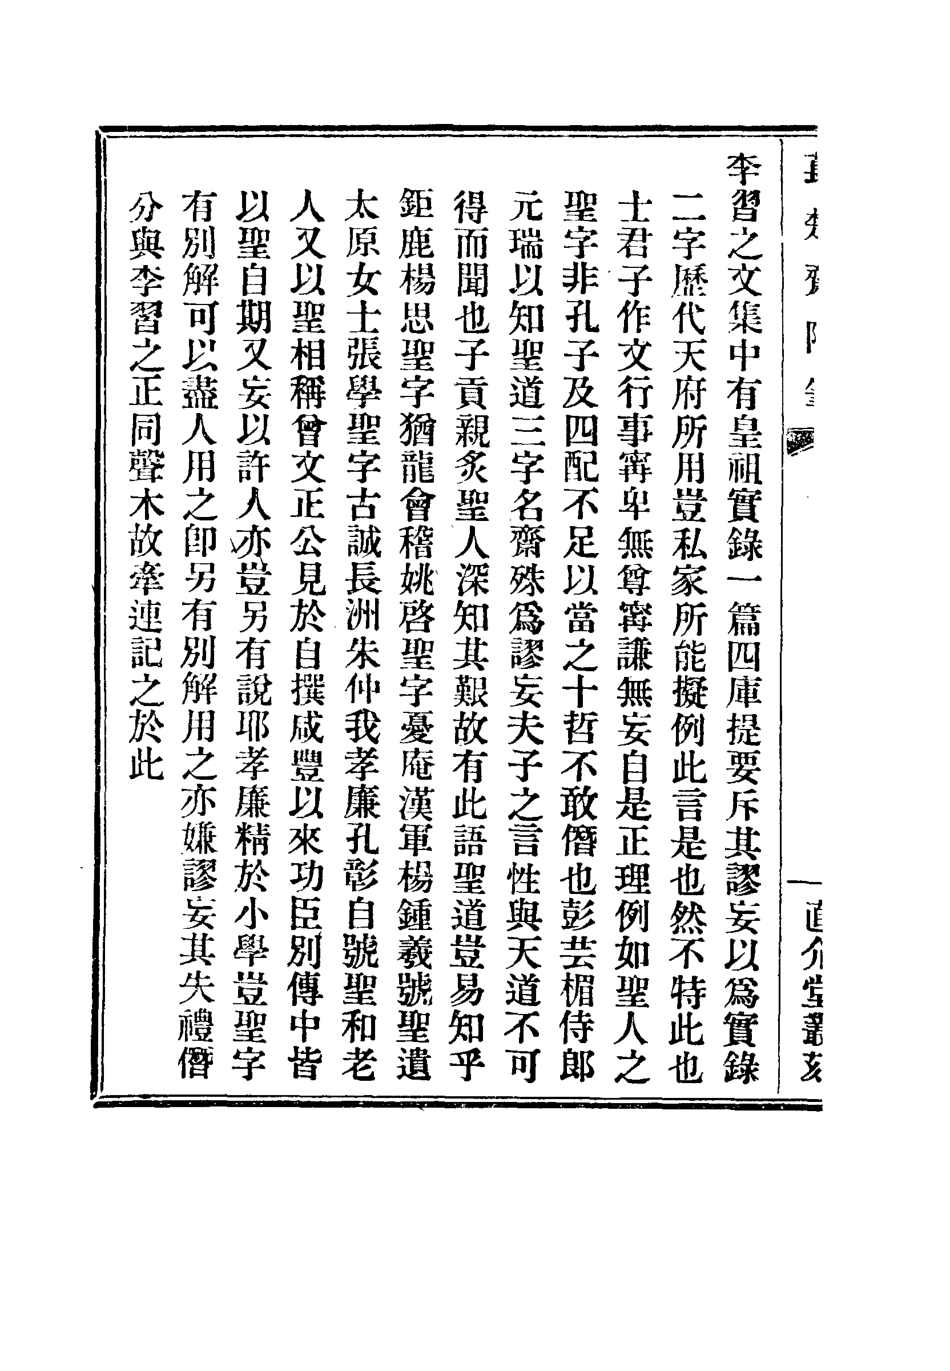 萇楚齋隨筆
直介堂叢刻
李習之文集中有皇祖實錄一篇四庫提要斥其謬妄以爲實錄
二字歷代天府所用豈私家所能擬例此言是也然不特此也
士君子作文行事寗卑無尊寗謙無妄自是正理例如聖人之
聖字非孔子及四配不足以當之十哲不敢僭也彭芸楣侍郎
元瑞以知聖道三字名齋殊爲謬妄夫子之言性與天道不可
得而聞也子貢親炙聖人深知其艱故有此語聖道豈易知乎
鉅鹿楊思聖字猶龍會稽姚啓聖字憂庵漢軍楊鍾羲號聖遺
太原女士張學聖字古誠長洲朱仲我孝廉孔彰自號聖和老
人又以聖相稱曾文正公見於自撰咸豐以來功臣別傳中皆
以聖自期又妄以許人亦豈另有說耶孝廉精於小學豈聖字
有別解可以盡人用之卽另有別解用之亦嫌謬妄其失禮僭
分與李習之正同聲木故牽連記之於此